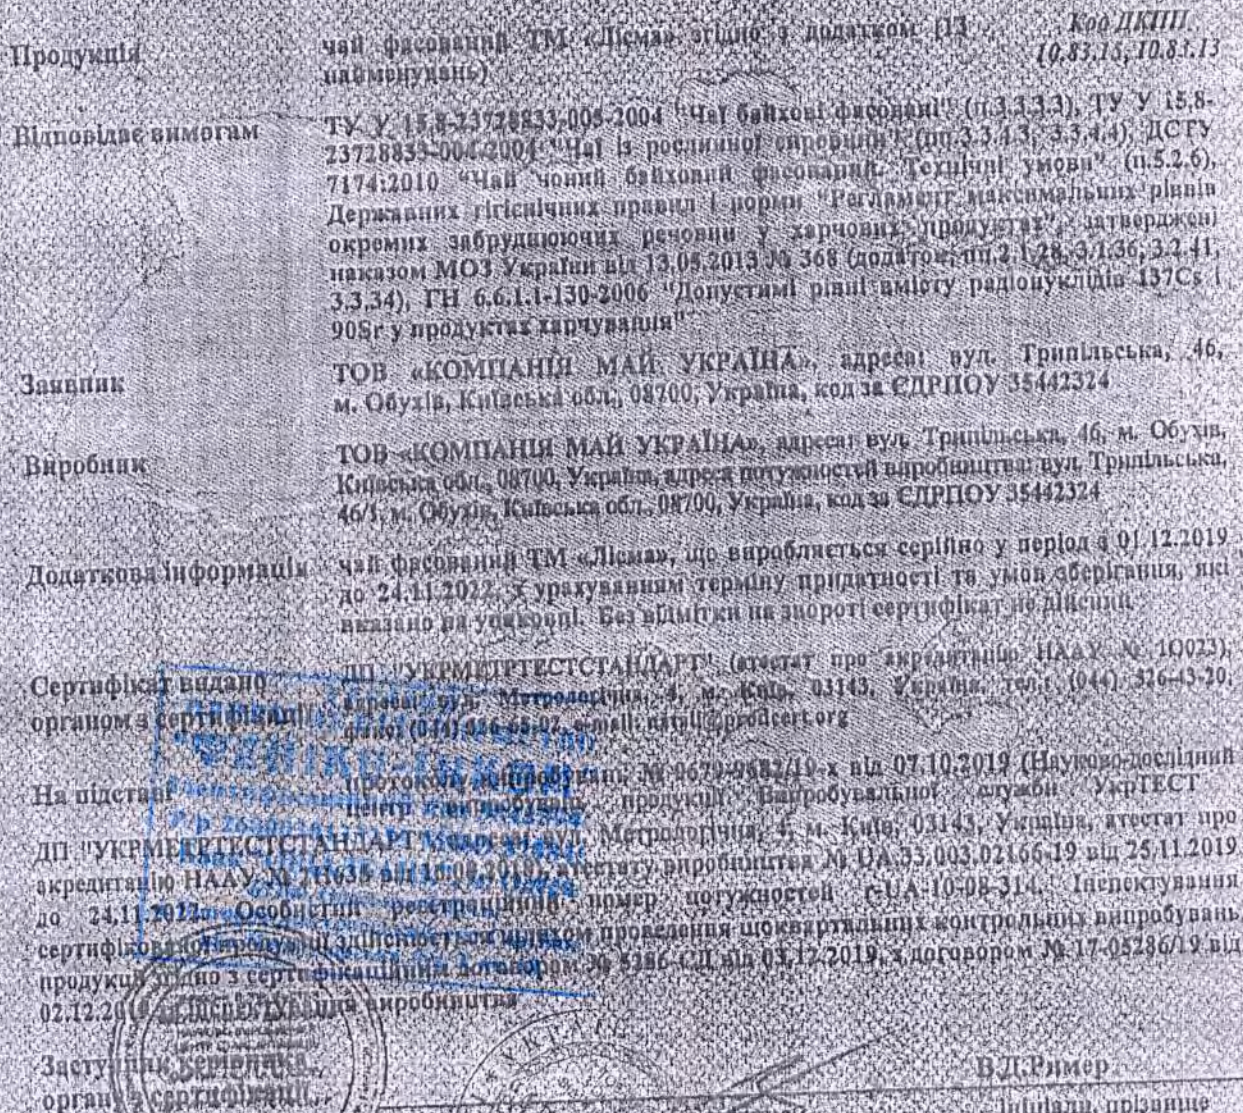 Продукція
чай фасований ТМ «Лісма» згідно з додатком (13
найменувань)
Код ДКПП
10.83.15, 10.83.13
Відповідає вимогам
ТУ У 15.8-23728833-005-2004 "Чаї байхові фасовані" (п.3.3.3.3), ТУ У 15.8-
23728833-004-2004 "Чаї із рослинної сировини" (пп.3.3.4.3, 3.3.4.4), ДСТУ
7174:2010 "Чай чоний байховий фасований. Технічні умови" (п.5.2.6),
Державних гігієнічних правил і норми "Регламент максимальних рівнів
окремих забруднюючих речовин у харчових продуктах", затверджені
наказом МОЗ України від 13.05.2013 № 368 (додаток, пп.2.1.28, 3.1.36, 3.2.41,
3.3.34), ГН 6.6.1.1-130-2006 "Допустимі рівні вмісту радіонуклідів 137Cs і
90Sr у продуктах харчування"
Заявник
ТОВ «КОМПАНІЯ МАЙ УКРАЇНА», адреса: вул. Трипільська, 46,
м. Обухів, Київська обл., 08700, Україна, код за ЄДРПОУ 35442324
Виробник
ТОВ «КОМПАНІЯ МАЙ УКРАЇНА», адреса: вул. Трипільська, 46, м. Обухів,
Київська обл., 08700, Україна, адреса потужностей виробництва: вул. Трипільська,
46/1, м. Обухів, Київська обл., 08700, Україна, код за ЄДРПОУ 35442324
Додаткова інформація
чай фасований ТМ «Лісма», що виробляється серійно у період з 01.12.2019
до 24.11.2022, з урахуванням терміну придатності та умов зберігання, які
вказано на упаковці. Без відмітки на звороті сертифікат не дійсний.
Сертифікат видано
органом з сертифікації
ДП "УКРМЕТРТЕСТСТАНДАРТ" (атестат про акредитацію НААУ № 1О023);
адреса: вул. Метрологічна, 4, м. Київ, 03143, Україна, тел.: (044) 526-43-20,
e-mail: natali@prodcert.org
На підставі
протоколу випробувань № 9679-9682/19-х від 07.10.2019 (Науково-дослідний
центр випробувань продукції Випробувальної служби УкрТЕСТ
ДП "УКРМЕТРТЕСТСТАНДАРТ", адреса: вул. Метрологічна, 4, м. Київ, 03143, Україна, атестат про
акредитацію НААУ № атестату виробництва № UA.33.003.02166-19 від 25.11.2019
до 24.11.2022. Особистий реєстраційний номер потужностей r-UA-10-08-314. Інспектування
сертифікованої продукції здійснюється шляхом проведення щоквартальних контрольних випробувань
продукції згідно з сертифікаційним договором № 5286-СД від 03.12.2019, з договором № 17-05286/19 від
02.12.2019 виробництва
Заступник керівника
органу з сертифікації
В.Д.Ример
ініціали, прізвище